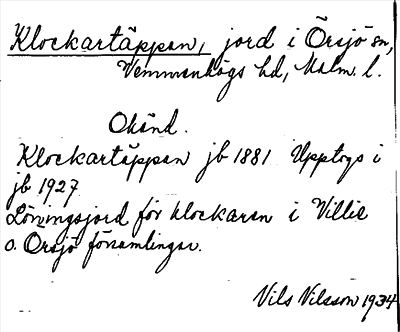 Klockartäppan, jord i Örsjö sn,
Vemmenhögs hd, Malm. l.
Okänd.
Klockartäppan jb 1881 Upptogs i
jb 1927
Löningsjord för klockaren i Villie
o. Örsjö församlingar.
Nils Nilsson 1934